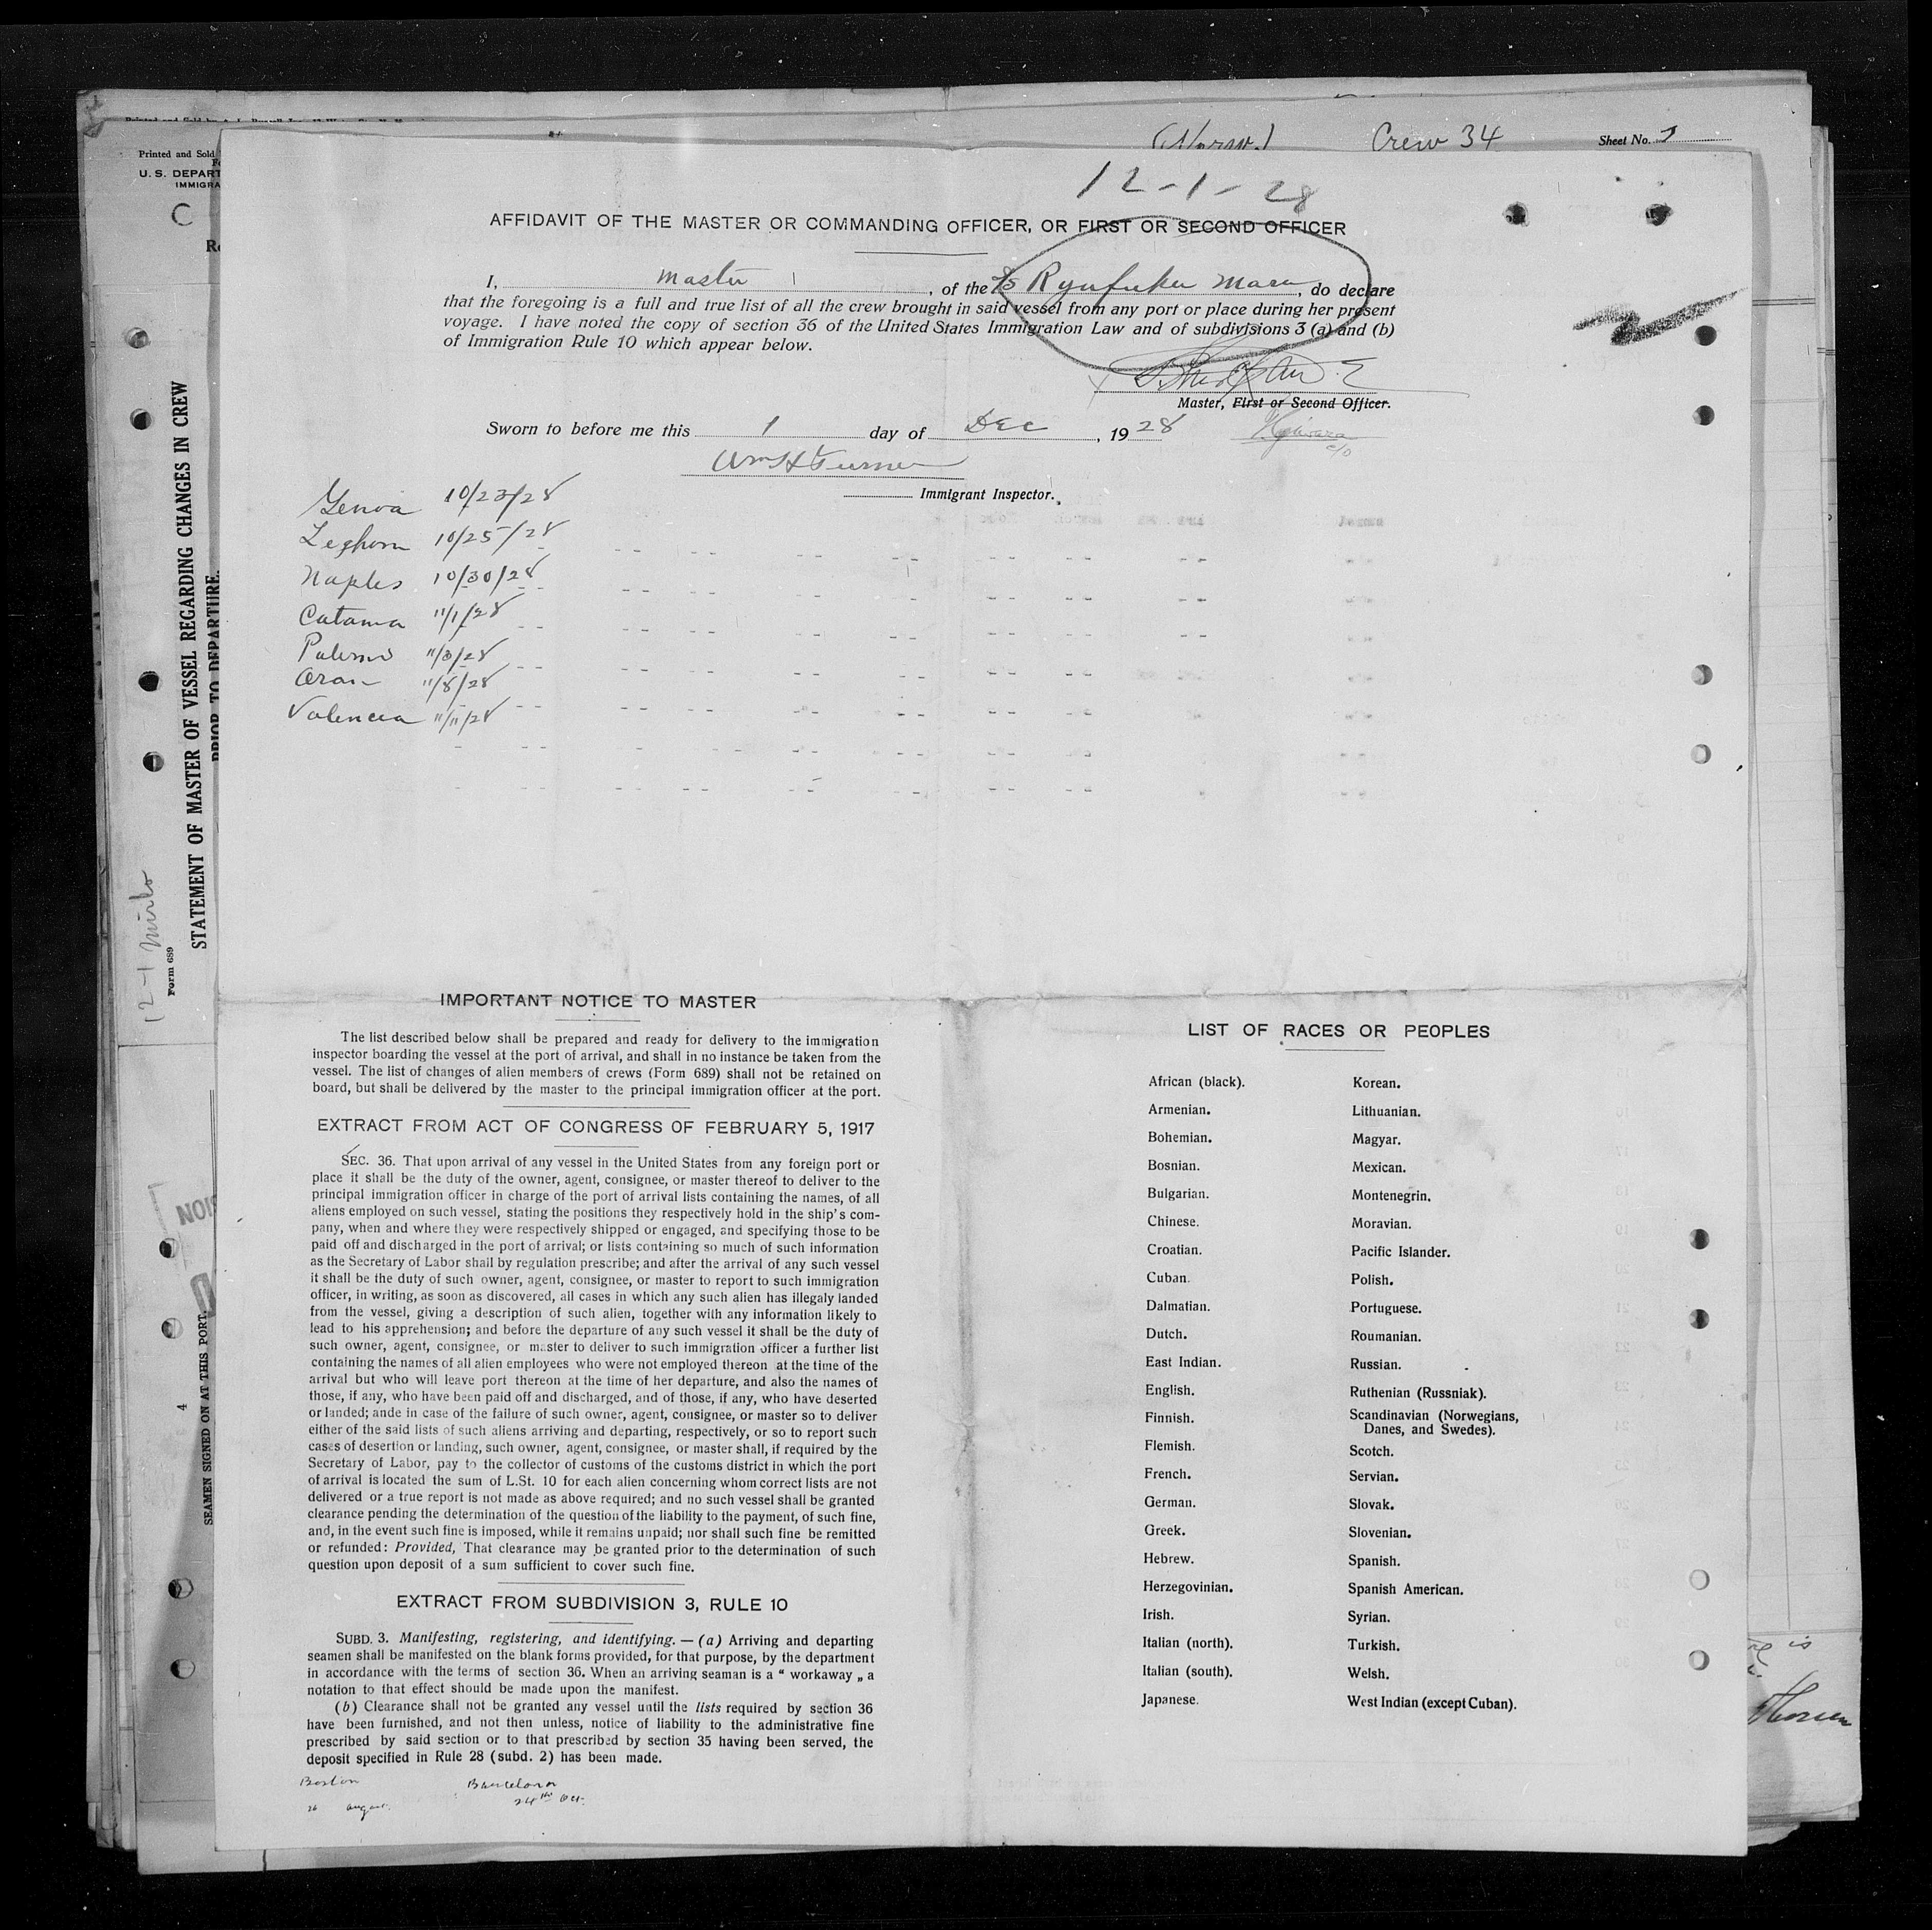 Crew 34 Sheet No.
Printed and Sold
U. S. DEPART
IMMIGRA
12-1-28
AFFIDAVIT OF THE MASTER OR COMMANDING OFFICER, OR FIRST OR SECOND OFFICER
I, Master, of the S/S Ryufuku Maru, do declare
that the foregoing is a full and true list of all the crew brought in said vessel from any port or place during her present
voyage. I have noted the copy of section 36 of the United States Immigration Law and of subdivisions 3 (a) and (b)
of Immigration Rule 10 which appear below.
Master, First or Second Officer.
Sworn to before me this 1 day of Dec, 1928
Wm H Turner
Immigrant Inspector.
Genoa 10/23/28
Leghorn 10/25/28
Naples 10/30/28
Catania 11/1/28
Palermo 11/3/28
Oran 11/8/28
Valencia 11/11/28
STATEMENT OF MASTER OF VESSEL REGARDING CHANGES IN CREW
PRIOR TO DEPARTURE.
Form 689
SEAMEN SIGNED ON AT THIS PORT.
4
IMPORTANT NOTICE TO MASTER
The list described below shall be prepared and ready for delivery to the immigration
inspector boarding the vessel at the port of arrival, and shall in no instance be taken from the
vessel. The list of changes of alien members of crews (Form 689) shall not be retained on
board, but shall be delivered by the master to the principal immigration officer at the port.
EXTRACT FROM ACT OF CONGRESS OF FEBRUARY 5, 1917
SEC. 36. That upon arrival of any vessel in the United States from any foreign port or
place it shall be the duty of the owner, agent, consignee, or master thereof to deliver to the
principal immigration officer in charge of the port of arrival lists containing the names, of all
aliens employed on such vessel, stating the positions they respectively hold in the ship's com-
pany, when and where they were respectively shipped or engaged, and specifying those to be
paid off and discharged in the port of arrival; or lists containing so much of such information
as the Secretary of Labor shall by regulation prescribe; and after the arrival of any such vessel
it shall be the duty of such owner, agent, consignee, or master to report to such immigration
officer, in writing, as soon as discovered, all cases in which any such alien has illegaly landed
from the vessel, giving a description of such alien, together with any information likely to
lead to his apprehension; and before the departure of any such vessel it shall be the duty of
such owner, agent, consignee, or master to deliver to such immigration officer a further list
containing the names of all alien employees who were not employed thereon at the time of the
arrival but who will leave port thereon at the time of her departure, and also the names of
those, if any, who have been paid off and discharged, and of those, if any, who have deserted
or landed; ande in case of the failure of such owner, agent, consignee, or master so to deliver
either of the said lists of such aliens arriving and departing, respectively, or so to report such
cases of desertion or landing, such owner, agent, consignee, or master shall, if required by the
Secretary of Labor, pay to the collector of customs of the customs district in which the port
of arrival is located the sum of L.St. 10 for each alien concerning whom correct lists are not
delivered or a true report is not made as above required; and no such vessel shall be granted
clearance pending the determination of the question of the liability to the payment, of such fine,
and, in the event such fine is imposed, while it remains unpaid; nor shall such fine be remitted
or refunded: Provided, That clearance may be granted prior to the determination of such
question upon deposit of a sum sufficient to cover such fine.
EXTRACT FROM SUBDIVISION 3, RULE 10
SUBD. 3. Manifesting, registering, and identifying. — (a) Arriving and departing
seamen shall be manifested on the blank forms provided, for that purpose, by the department
in accordance with the terms of section 36. When an arriving seaman is a “ workaway „ a
notation to that effect should be made upon the manifest.
(b) Clearance shall not be granted any vessel until the lists required by section 36
have been furnished, and not then unless, notice of liability to the administrative fine
prescribed by said section or to that prescribed by section 35 having been served, the
deposit specified in Rule 28 (subd. 2) has been made.
Boston Barcelona
26 August. 24th Oct.
LIST OF RACES OR PEOPLES
African (black).
Armenian.
Bohemian.
Bosnian.
Bulgarian.
Chinese.
Croatian.
Cuban.
Dalmatian.
Dutch.
East Indian.
English.
Finnish.
Flemish.
French.
German.
Greek.
Hebrew.
Herzegovinian.
Irish.
Italian (north).
Italian (south).
Japanese.
Korean.
Lithuanian.
Magyar.
Mexican.
Montenegrin.
Moravian.
Pacific Islander.
Polish.
Portuguese.
Roumanian.
Russian.
Ruthenian (Russniak).
Scandinavian (Norwegians,
Danes, and Swedes).
Scotch.
Servian.
Slovak.
Slovenian.
Spanish.
Spanish American.
Syrian.
Turkish.
Welsh.
West Indian (except Cuban).